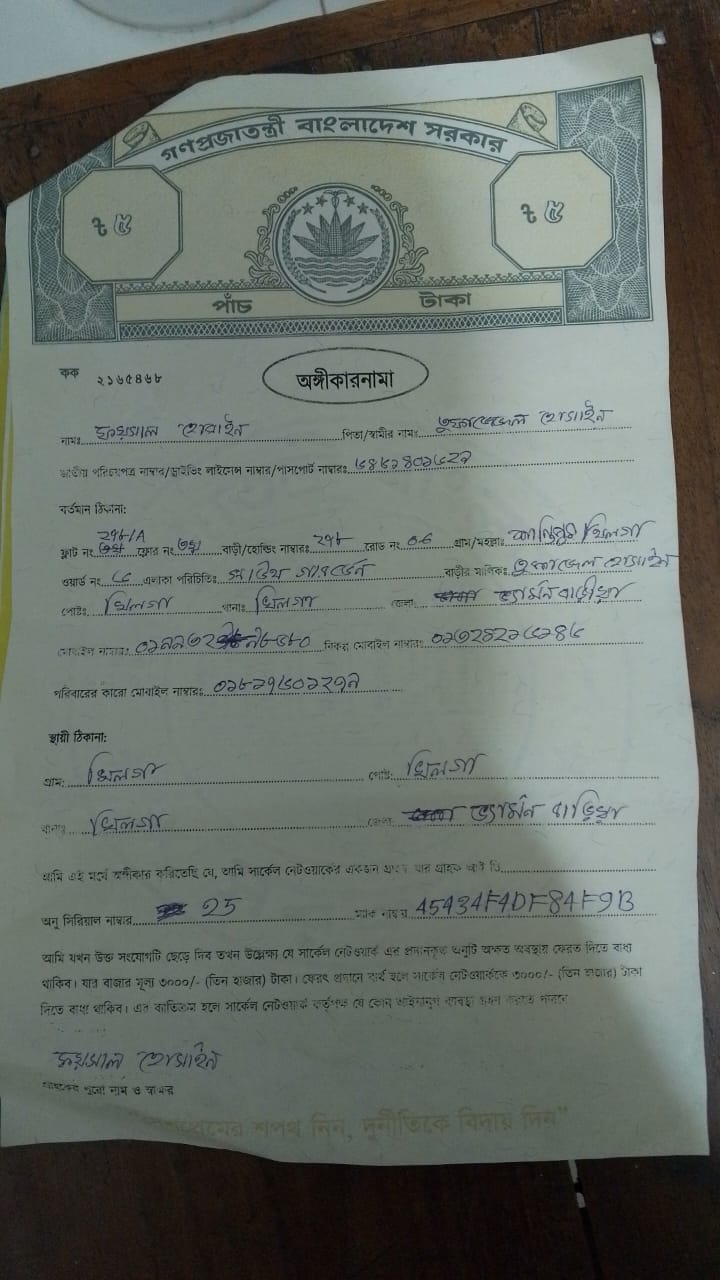 গণপ্রজাতন্ত্রী বাংলাদেশ সরকার
৳ ৫ ৳ ৫
পাঁচ টাকা
কক ২১৬৫৪৬৮
অঙ্গীকারনামা
নামঃ ফয়সাল হোসাইন পিতা/স্বামীর নামঃ তুফাজ্জেল হোসাইন
জাতীয় পরিচয়পত্র নাম্বার/ড্রাইভিং লাইসেন্স নাম্বার/পাসপোর্ট নাম্বারঃ
বর্তমান ঠিকানা:
ফ্লাট নং ২৭৮/A ফ্লোর নং ৩য় বাড়ী/হোল্ডিং নাম্বারঃ ২৭৮ রোড নং গ্রাম/মহল্লাঃ
ওয়ার্ড নং এলাকা পরিচিতিঃ সাউথ গার্ডেন বাড়ীর মালিকঃ তুফাজ্জেল হোসাইন
পোষ্টঃ খিলগা থানাঃ খিলগা জেলা
মোবাইল নাম্বারঃ বিকল্প মোবাইল নাম্বারঃ
পরিবারের কারো মোবাইল নাম্বারঃ
স্থায়ী ঠিকানা:
গ্রাম: খিলগা পোষ্ট: খিলগা
থানাঃ খিলগা জেলা
আমি এই মর্মে অঙ্গীকার করিতেছি যে, আমি সার্কেল নেটওয়ার্কের একজন গ্রাহক যার গ্রাহক আই ডি
অনু সিরিয়াল নাম্বার 25 ম্যাক নাম্বার 45434F4DF84F9B
আমি যখন উক্ত সংযোগটি ছেড়ে দিব তখন উল্লেক্ষ্য যে সার্কেল নেটওয়ার্ক এর প্রদানকৃত অনুটি অক্ষত অবস্থায় ফেরত দিতে বাধ্য
থাকিব। যার বাজার মূল্য ৩০০০/- (তিন হাজার) টাকা। ফেরৎ প্রদানে ব্যর্থ হলে সার্কেল নেটওয়ার্ককে ৩০০০/- (তিন হাজার) টাকা
দিতে বাধ্য থাকিব। এর ব্যতিক্রম হলে সার্কেল নেটওয়ার্ক কর্তৃপক্ষ যে কোন আইনানুগ ব্যবস্থা গ্রহন করতে পারবে
ফয়সাল হোসাইন
গ্রাহকের পুরো নাম ও স্বাক্ষর
"দেশপ্রেমের শপথ নিন, দুর্নীতিকে বিদায় দিন"